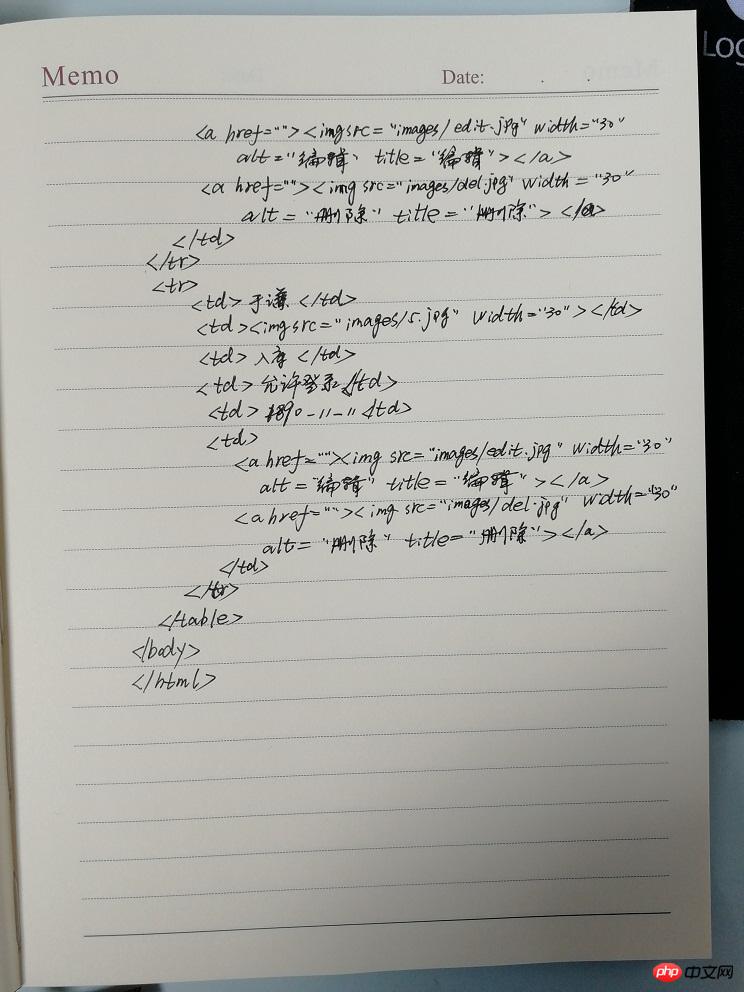 Log
Memo Date: . .
<a href=""><img src="images/edit.jpg" width="30"
alt="编辑" title="编辑"></a>
<a href=""><img src="images/del.jpg" width="30"
alt="删除" title="删除"></a>
</td>
</tr>
<tr>
<td>于谦</td>
<td><img src="images/5.jpg" width="30"></td>
<td></td>
<td>允许登录</td>
<td>1890-11-11</td>
<td>
<a href=""><img src="images/edit.jpg" width="30"
alt="编辑" title="编辑"></a>
<a href=""><img src="images/del.jpg" width="30"
alt="删除" title="删除"></a>
</td>
</tr>
</table>
</body>
</html>
php 中文网